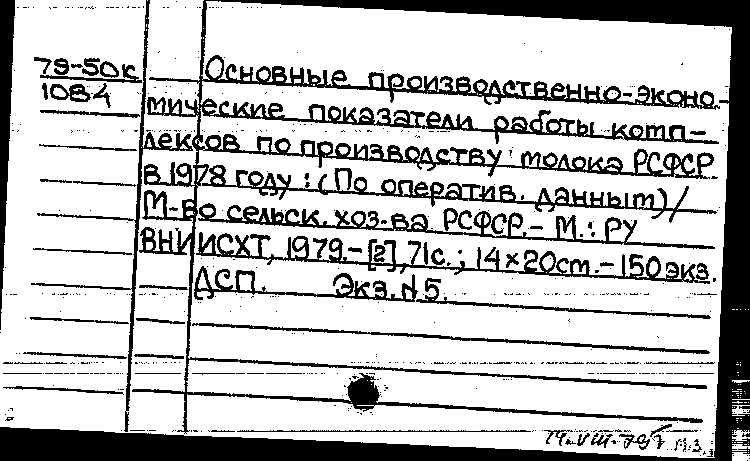 79-50к
1084
Основные производственно-эконо-
мические показатели работы комп-
лексов по производству молока РСФСР
в 1978 году : (По оператив. данным) /
М-во сельск. хоз-ва РСФСР. - М. : РУ
ВНИИСХТ, 1979. - [2], 71с. ; 14×20см. - 150экз.
ДСП. Экз. №5.